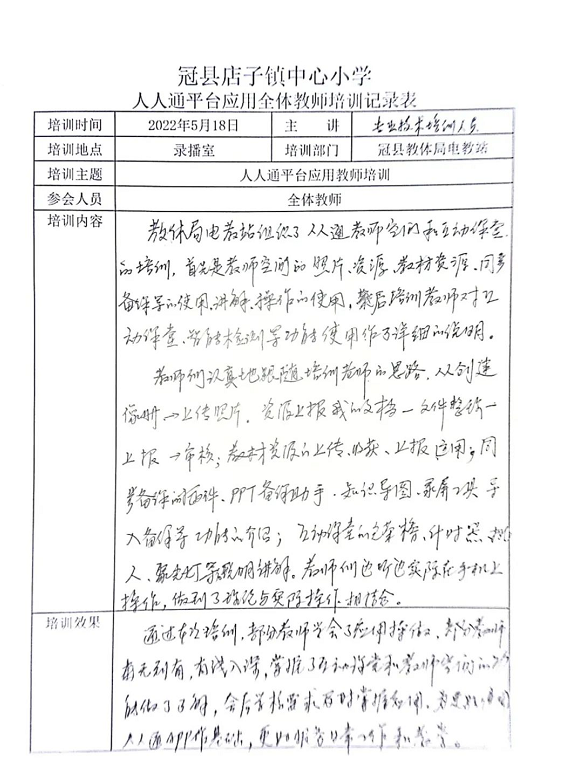 冠县店子镇中心小学
人人通平台应用全体教师培训记录表
培训时间 2022年5月18日 主 讲 专业技术培训人员
培训地点 录播室 培训部门 冠县教体局电教站
培训主题 人人通平台应用教师培训
参会人员 全体教师
培训内容
教体局电教站组织了人人通教师空间和互动课堂
的培训，首先是教师空间的照片、资源、教材资源、同步
备课等的使用、讲解、操作的使用，最后培训教师对互
动课堂、智能检测等功能使用作了详细的说明。
教师们认真地跟随培训教师的思路，从创建
像册→上传照片，资源上报我的文档—文件整理—
上报→审核；教材资源的上传、收获、上报、运用；同
步备课的画件、PPT备课助手、知识导图、录屏工具 导
入备课等功能的介绍；互动课堂的 计时器、
人、聚光灯等说明讲解。教师们边听边实际在手机上
操作，做到了理论与实际操作相结合。
培训效果
通过本次培训，部分教师学会了应用操作，部分教师
从无到有，由浅入深，掌握了互动课堂和教师空间的
能做了了解，会后学校要求及时掌握应用，
人人通APP作基础，更好服务日常工作和教学。